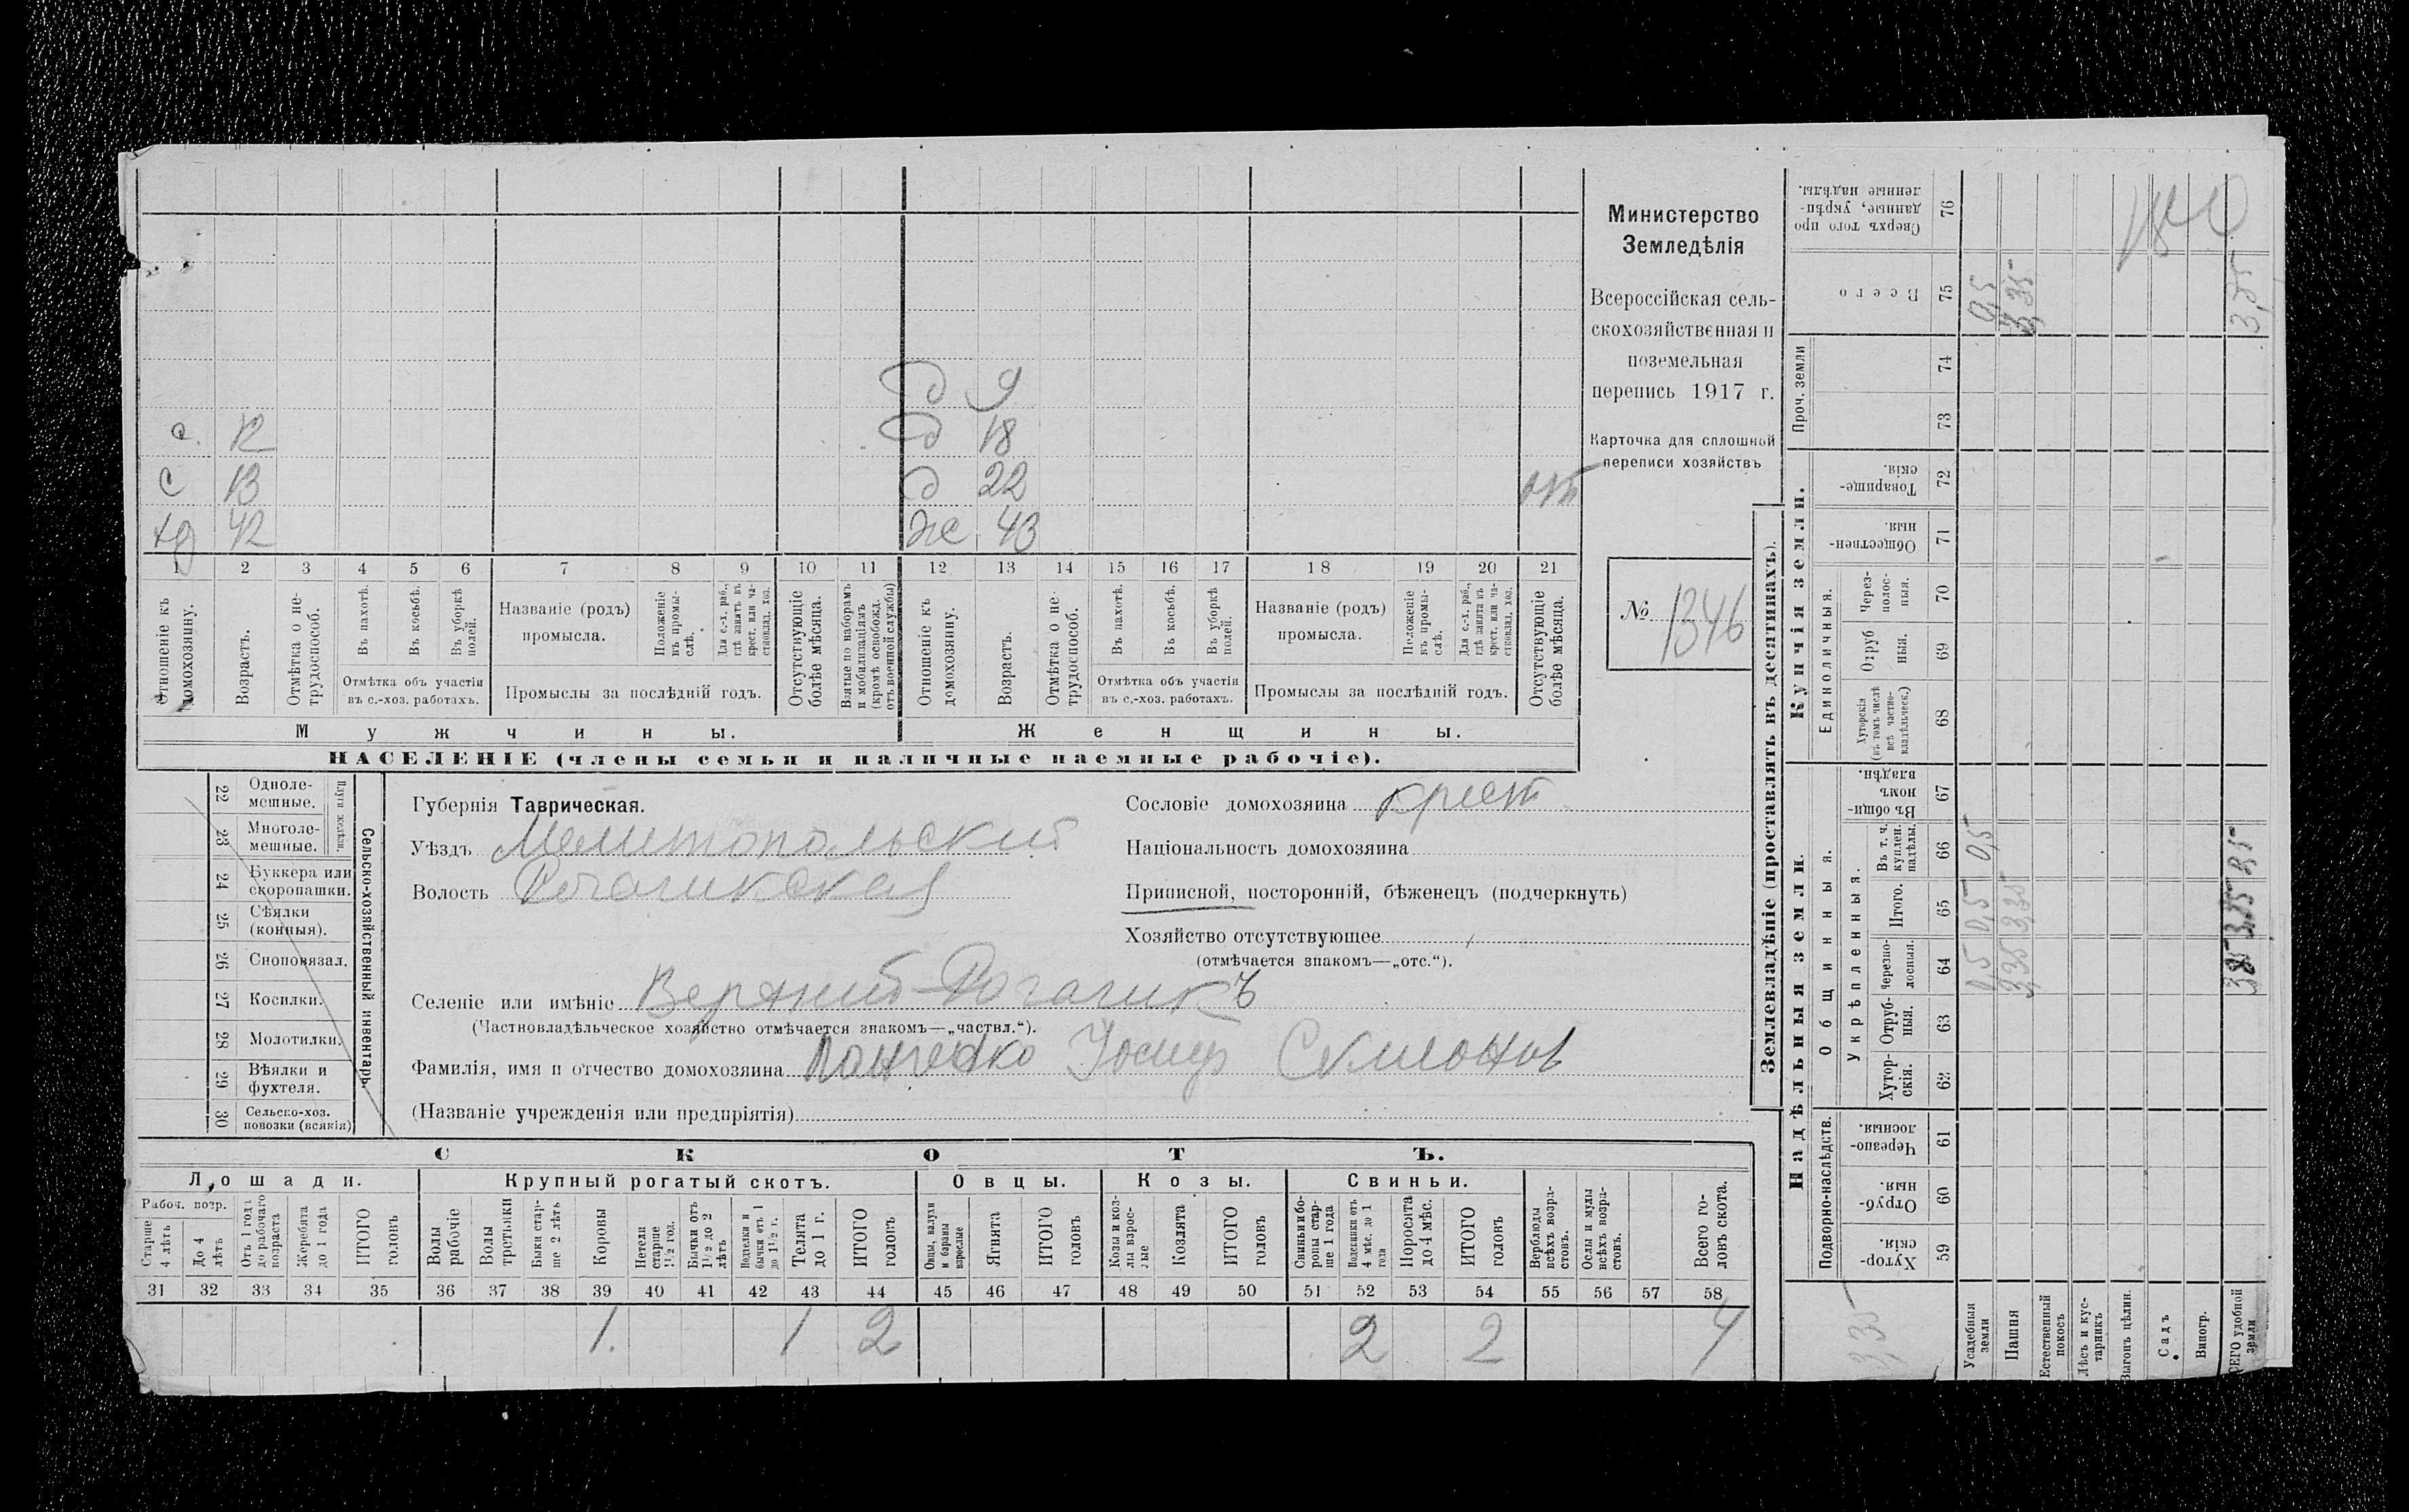 Министерство
Земледѣлія
Всероссійская сель-
скохозяйственная и
поземельная
перепись 1917 г.
Карточка для сплошной
переписи хозяйствъ
№ 1346
д 9
с. 12 д 18
с 13 д 22 отп
хд 42 же 43
1 2 3 4 5 6 7 8 9 10 11 12 13 14 15 16 17 18 19 20 21
Отношеніе къ домохозяину.
Возрастъ.
Отмѣтка о не-трудоспособ.
Въ пахотѣ.
Въ косьбѣ.
Въ уборкѣ полей.
Отмѣтка объ участіи
въ с.-хоз. работахъ.
Названіе (родъ)
промысла.
Положеніе въ промы-слѣ.
Для с.-х. раб., гдѣ занятъ въ крест. или ча-стновлад. хоз.
Промыслы за послѣдній годъ.
Отсутствующіе болѣе мѣсяца.
Взятые по наборамъ и мобилизаціямъ (кромѣ освобожд. отъ военной службы)
Отношеніе къ домохозяину.
Возрастъ.
Отмѣтка о не-трудоспособ.
Въ пахотѣ.
Въ косьбѣ.
Въ уборкѣ полей.
Отмѣтка объ участіи
въ с.-хоз. работахъ.
Названіе (родъ)
промысла.
Положеніе въ промы-слѣ.
Для с.-х. раб., гдѣ занята въ крест. или ча-стновлад. хоз.
Промыслы за послѣдній годъ.
Отсутствующіе болѣе мѣсяца.
Мужчины. Женщины.
НАСЕЛЕНІЕ (члены семьи и наличные наемные рабочіе).
Сельско-хозяйственный инвентарь.
Плуги желѣзн.
22 Одноле-мешные.
23 Многоле-мешные.
24 Буккера или скоропашки.
25 Сѣялки (конныя).
26 Сноповязал.
27 Косилки.
28 Молотилки.
29 Вѣялки и фухтеля.
30 Сельско-хоз. повозки (всякія)
Губернія Таврическая.
Уѣздъ Мелитопольский
Волость Рогачикская
Селеніе или имѣніе Верхний-Рогачикъ
(Частновладѣльческое хозяйство отмѣчается знакомъ—„частвл.“).
Фамилія, имя и отчество домохозяина Панченко Иосиф Семионов
(Названіе учрежденія или предпріятія)
Сословіе домохозяина крест
Національность домохозяина
Приписной, посторонній, бѣженецъ (подчеркнуть)
Хозяйство отсутствующее
(отмѣчается знакомъ—„отс.“).
СКОТЪ.
Лошади. Крупный рогатый скотъ. Овцы. Козы. Свиньи.
Рабоч. возр.
Старше 4 лѣтъ
До 4 лѣтъ
Отъ 1 года до рабочаго возраста
Жеребята до 1 года
ИТОГО головъ
Волы рабочіе
Волы третьяки
Быки стар-ше 2 лѣтъ
Коровы
Нетели старше 1½ год.
Бычки отъ 1½ до 2 лѣтъ
Подтелки и бычки отъ 1 до 1½ г.
Телята до 1 г.
ИТОГО головъ
Овцы, валухи и бараны взрослые
Ягнята
ИТОГО головъ
Козы и коз-лы взрос-лые
Козлята
ИТОГО головъ
Свиньи и бо-ровы стар-ше 1 года
Подсвинки отъ 4 мѣс. до 1 года
Поросята до 4 мѣс.
ИТОГО головъ
Верблюды всѣхъ возра-стовъ.
Ослы и мулы всѣхъ возра-стовъ.
Всего го-ловъ скота.
31 32 33 34 35 36 37 38 39 40 41 42 43 44 45 46 47 48 49 50 51 52 53 54 55 56 57 58
1. 1 2 2 2 4
Землевладѣніе (проставлять въ десятинахъ).
Надѣльныя земли. Купчія земли.
Подворно-наслѣдств.
Общинныя.
Укрѣпленныя.
Единоличныя.
Проч. земли
Хутор-скія. 59
Отруб-ныя. 60
Черезпо-лосныя. 61
Хутор-скія. 62
Отруб-ныя. 63
Черезпо-лосныя. 64
Итого. 65
Въ т. ч. куплен. надѣлы. 66
Въ общи-номъ владѣн. 67
Хуторскія (въ томъ числѣ всѣ частно-владѣльческ.) 68
Отруб ныя. 69
Через-полос-ныя. 70
Обществен-ныя. 71
Товарище-скія. 72
73
74
Всего 75
Сверхъ того про данные, укрѣп-ленные надѣлы. 76
3,35
Усадебныя земли 0,5 0,5 0,5 0,5
Пашня 3,35 3,35 3,35
Естественный покосъ
Лѣсъ и кус-тарникъ
Выгонъ цѣлин.
Садъ
Виногр.
ВСЕГО удобной земли 3,85 3,85